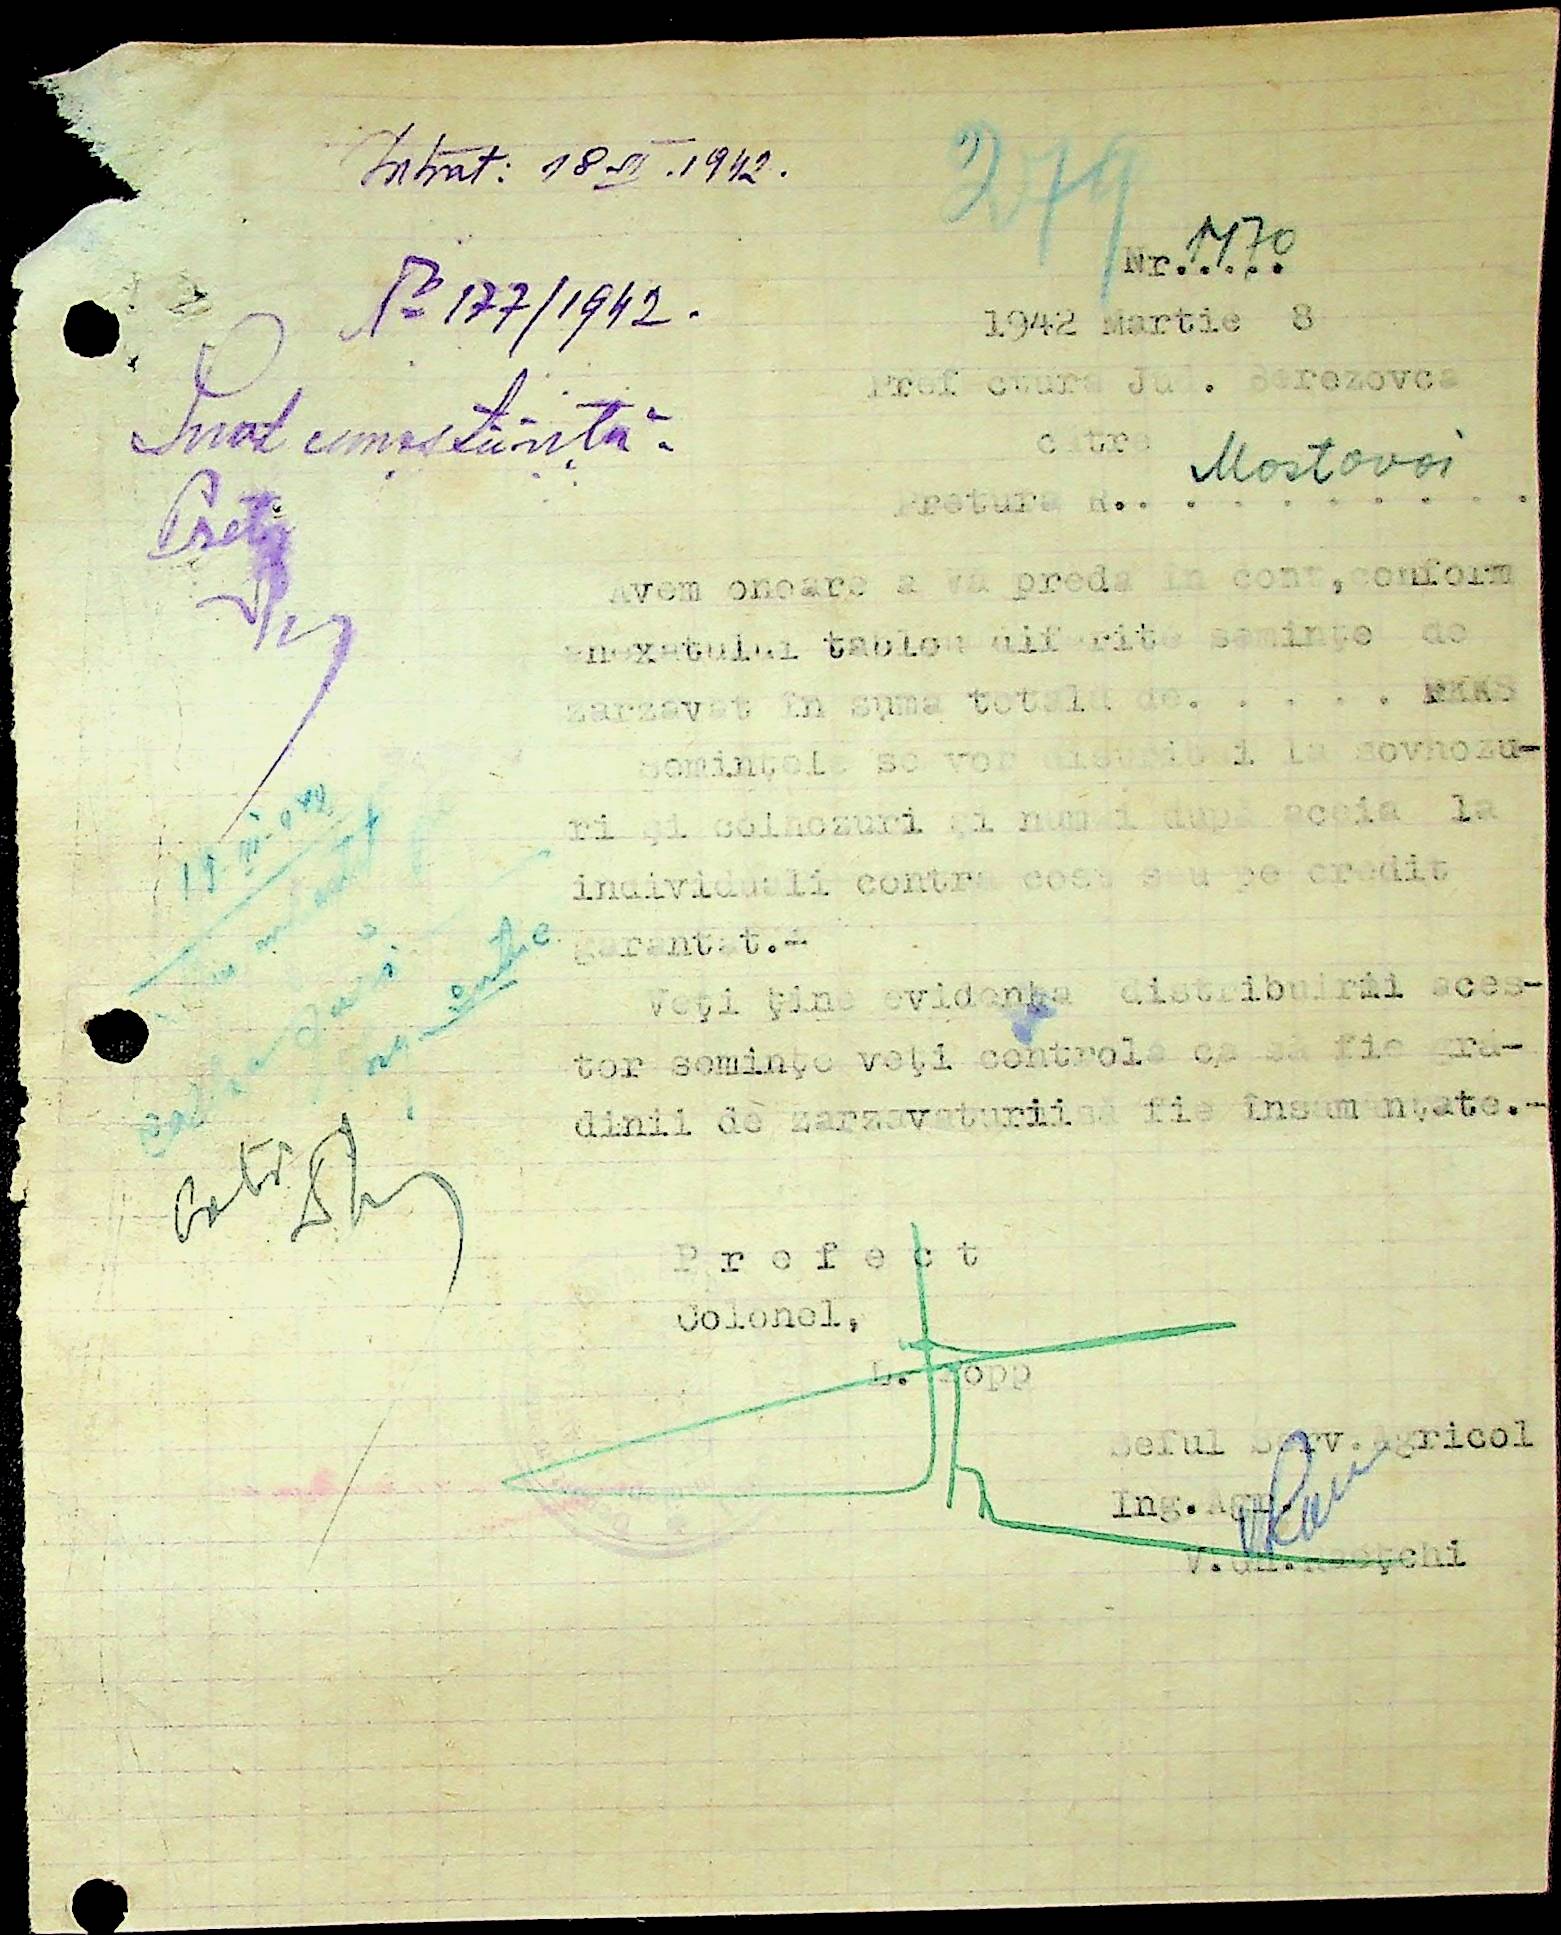 Intrat: 18 III .1942.
279
Nr. 1770
No 177/1942.
1942 Martie 8
Prefectura Jud. Berezovca
catre
Luat cunostiintă.
Pretura R. Mostovoi
Pretor
Avem onoare a va preda în cont,conform
anexatului tablou diferite seminţe de
zarzavat în suma totală de. . . . .
Seminţele se vor distribui la sovhozu-
ri şi colhozuri şi numai după aceia la
individuali contra cost sau pe credit
garantat.-
Veţi ţine evidenţa distribuirii aces-
tor seminţe veţi controla ca să fie gră-
dinii de zarzavaturi să fie însamanţate.-
19 III 942
P r e f e c t
Colonel,
L. Popp
Seful Serv.Agricol
Ing.Agr.
V.Gh.